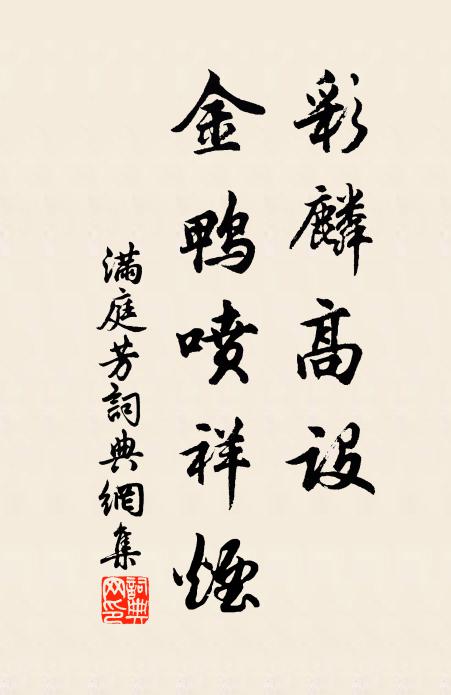 彩麟高設
金鴨噴祥煙
滿庭芳詞典網集
詞典網印